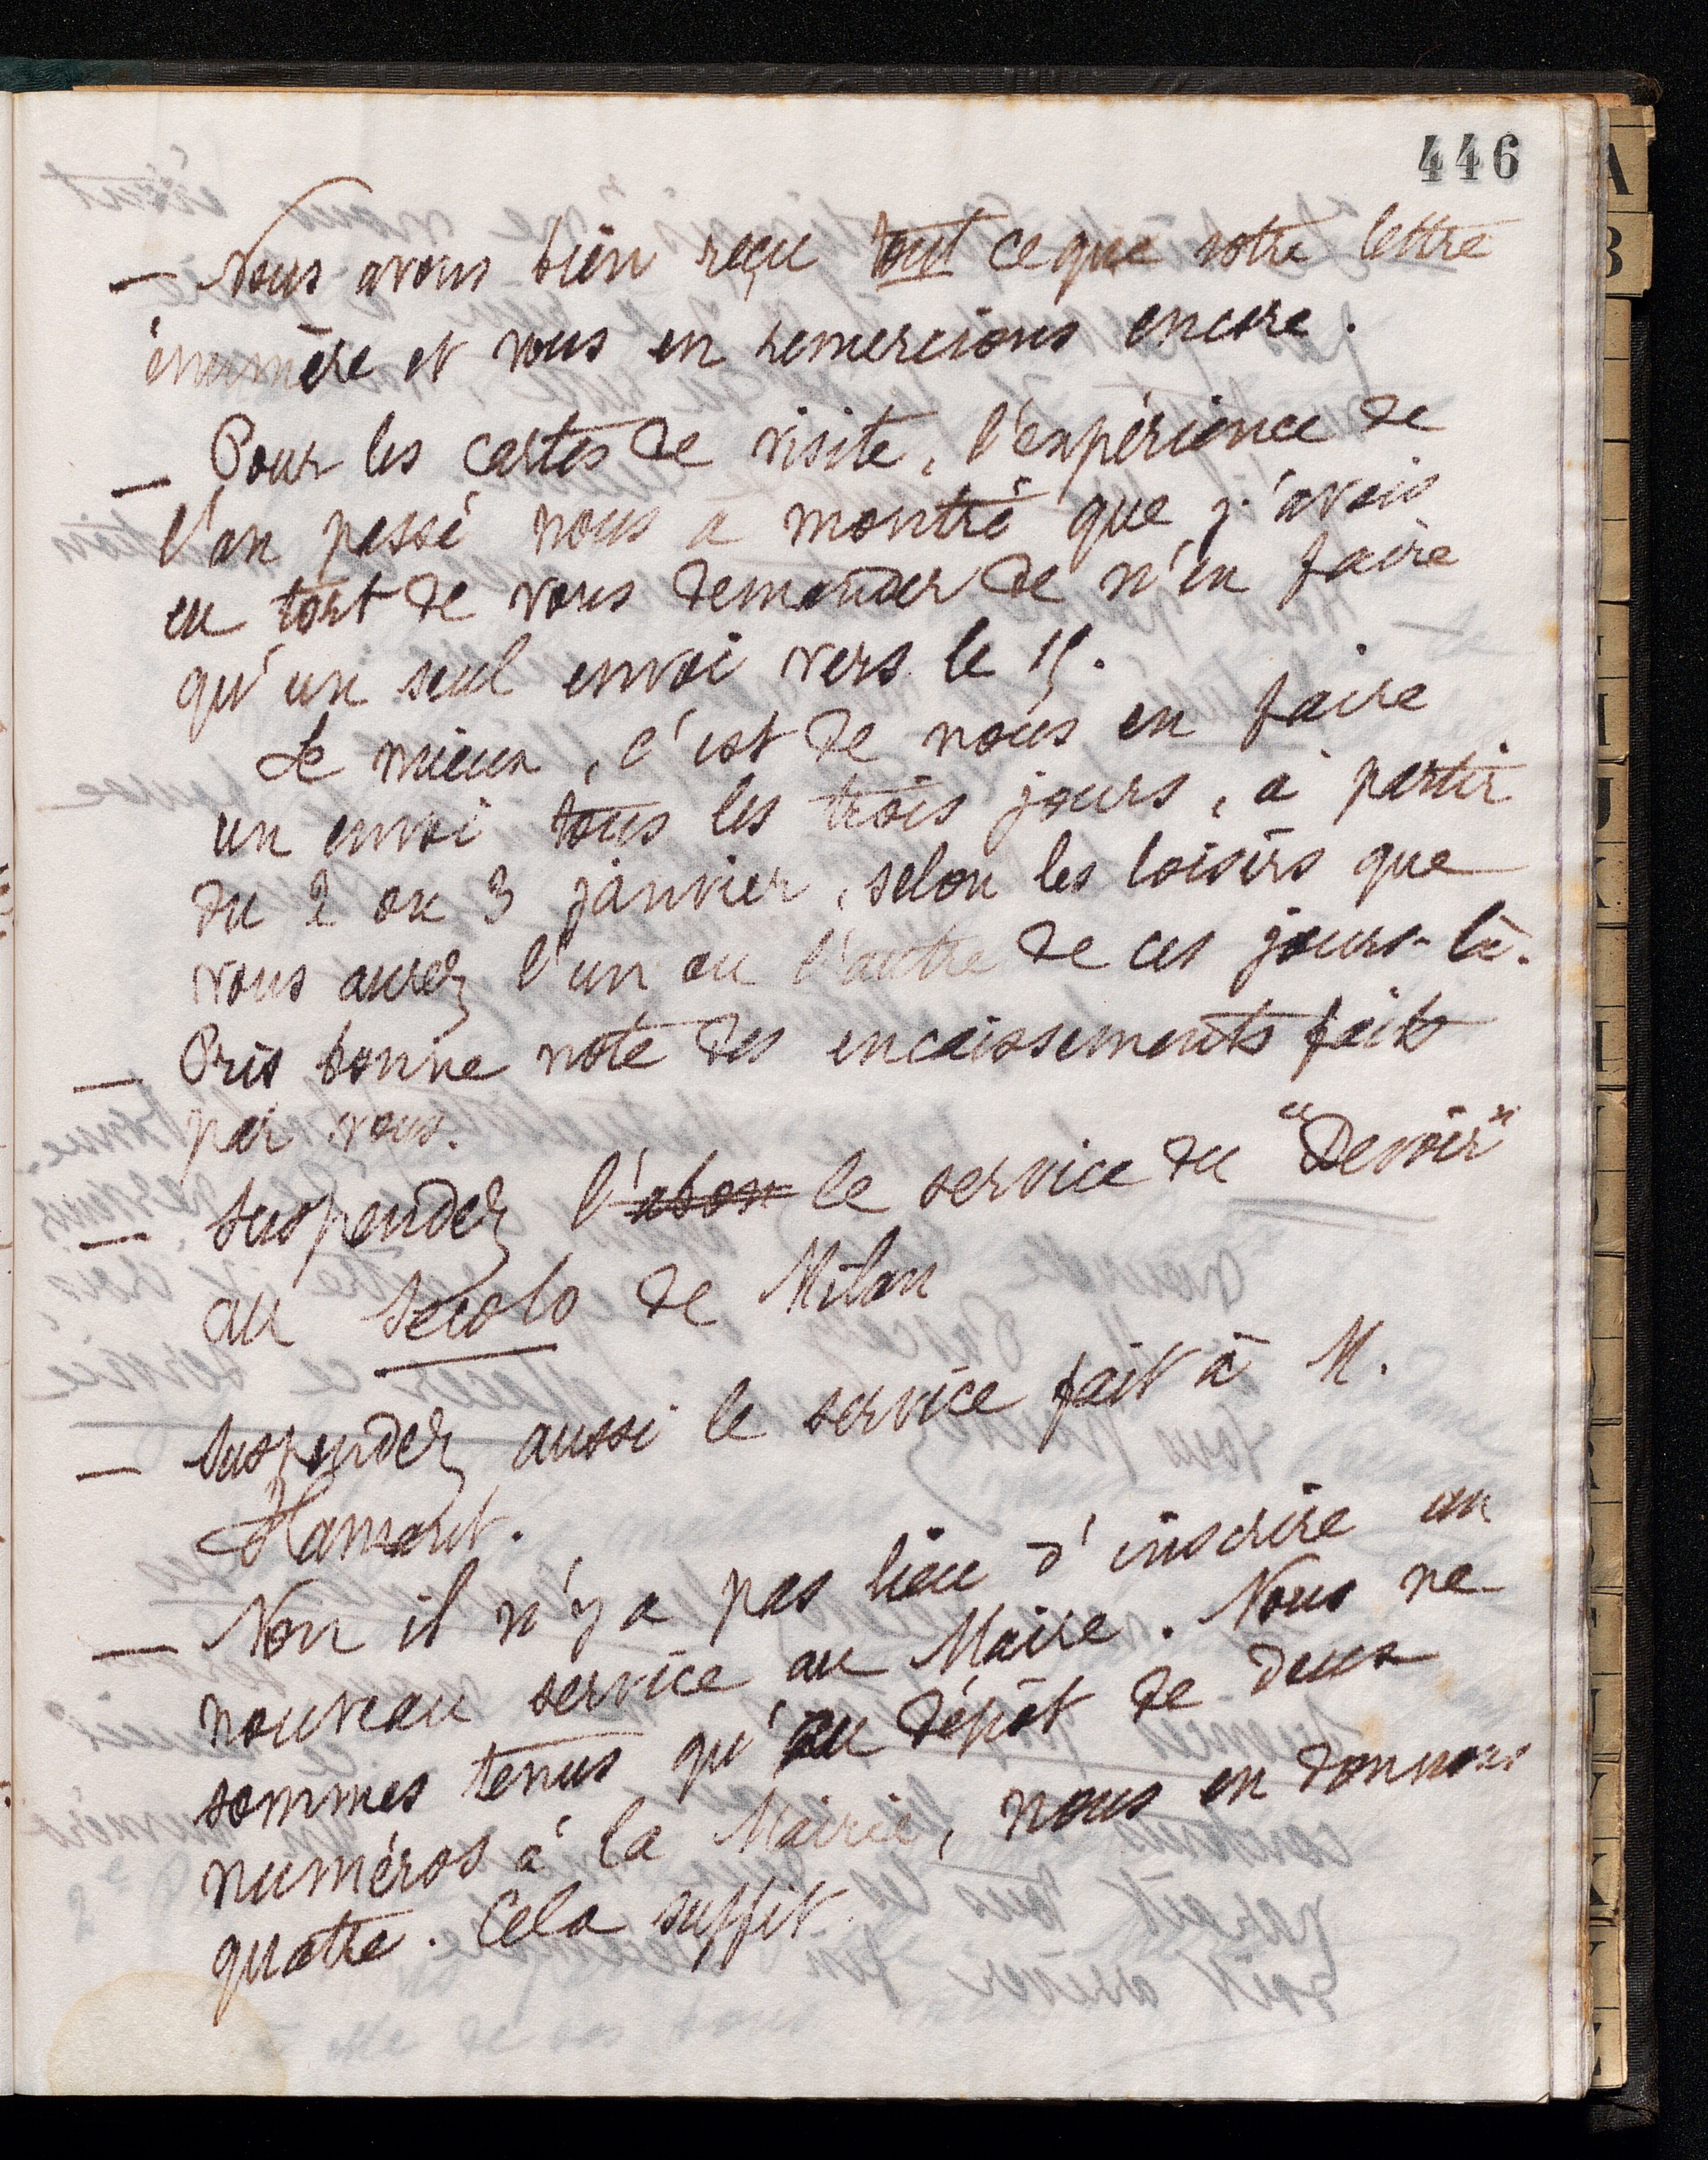 446
— Nous avons bien reçu tout ce que votre lettre
énumère et vous en remercions encore.
— Pour les cartes de visite, l'expérience de
l'an passé nous a montré que j'avais
eu tort de vous demander de n'en faire
qu'un seul envoi vers le 15.
Le mieux, c'est de nous en faire
un envoi tous les trois jours, à partir
du 2 ou 3 janvier, selon les loisirs que
vous aurez l'un ou l'autre de ces jours-là.
— Pris bonne note des encaissements faits
par vous.
— Suspendez l'abon le service du "Devoir"
au Secolo de Milan
— Suspendez aussi le service fait à M.
Hamart.
— Non il n'y a pas lieu d'inscrire un
nouveau service au Maire. Nous ne
sommes tenus qu'au dépôt de deux
numéros à la Mairie, nous en donnons
quatre. Cela suffit.